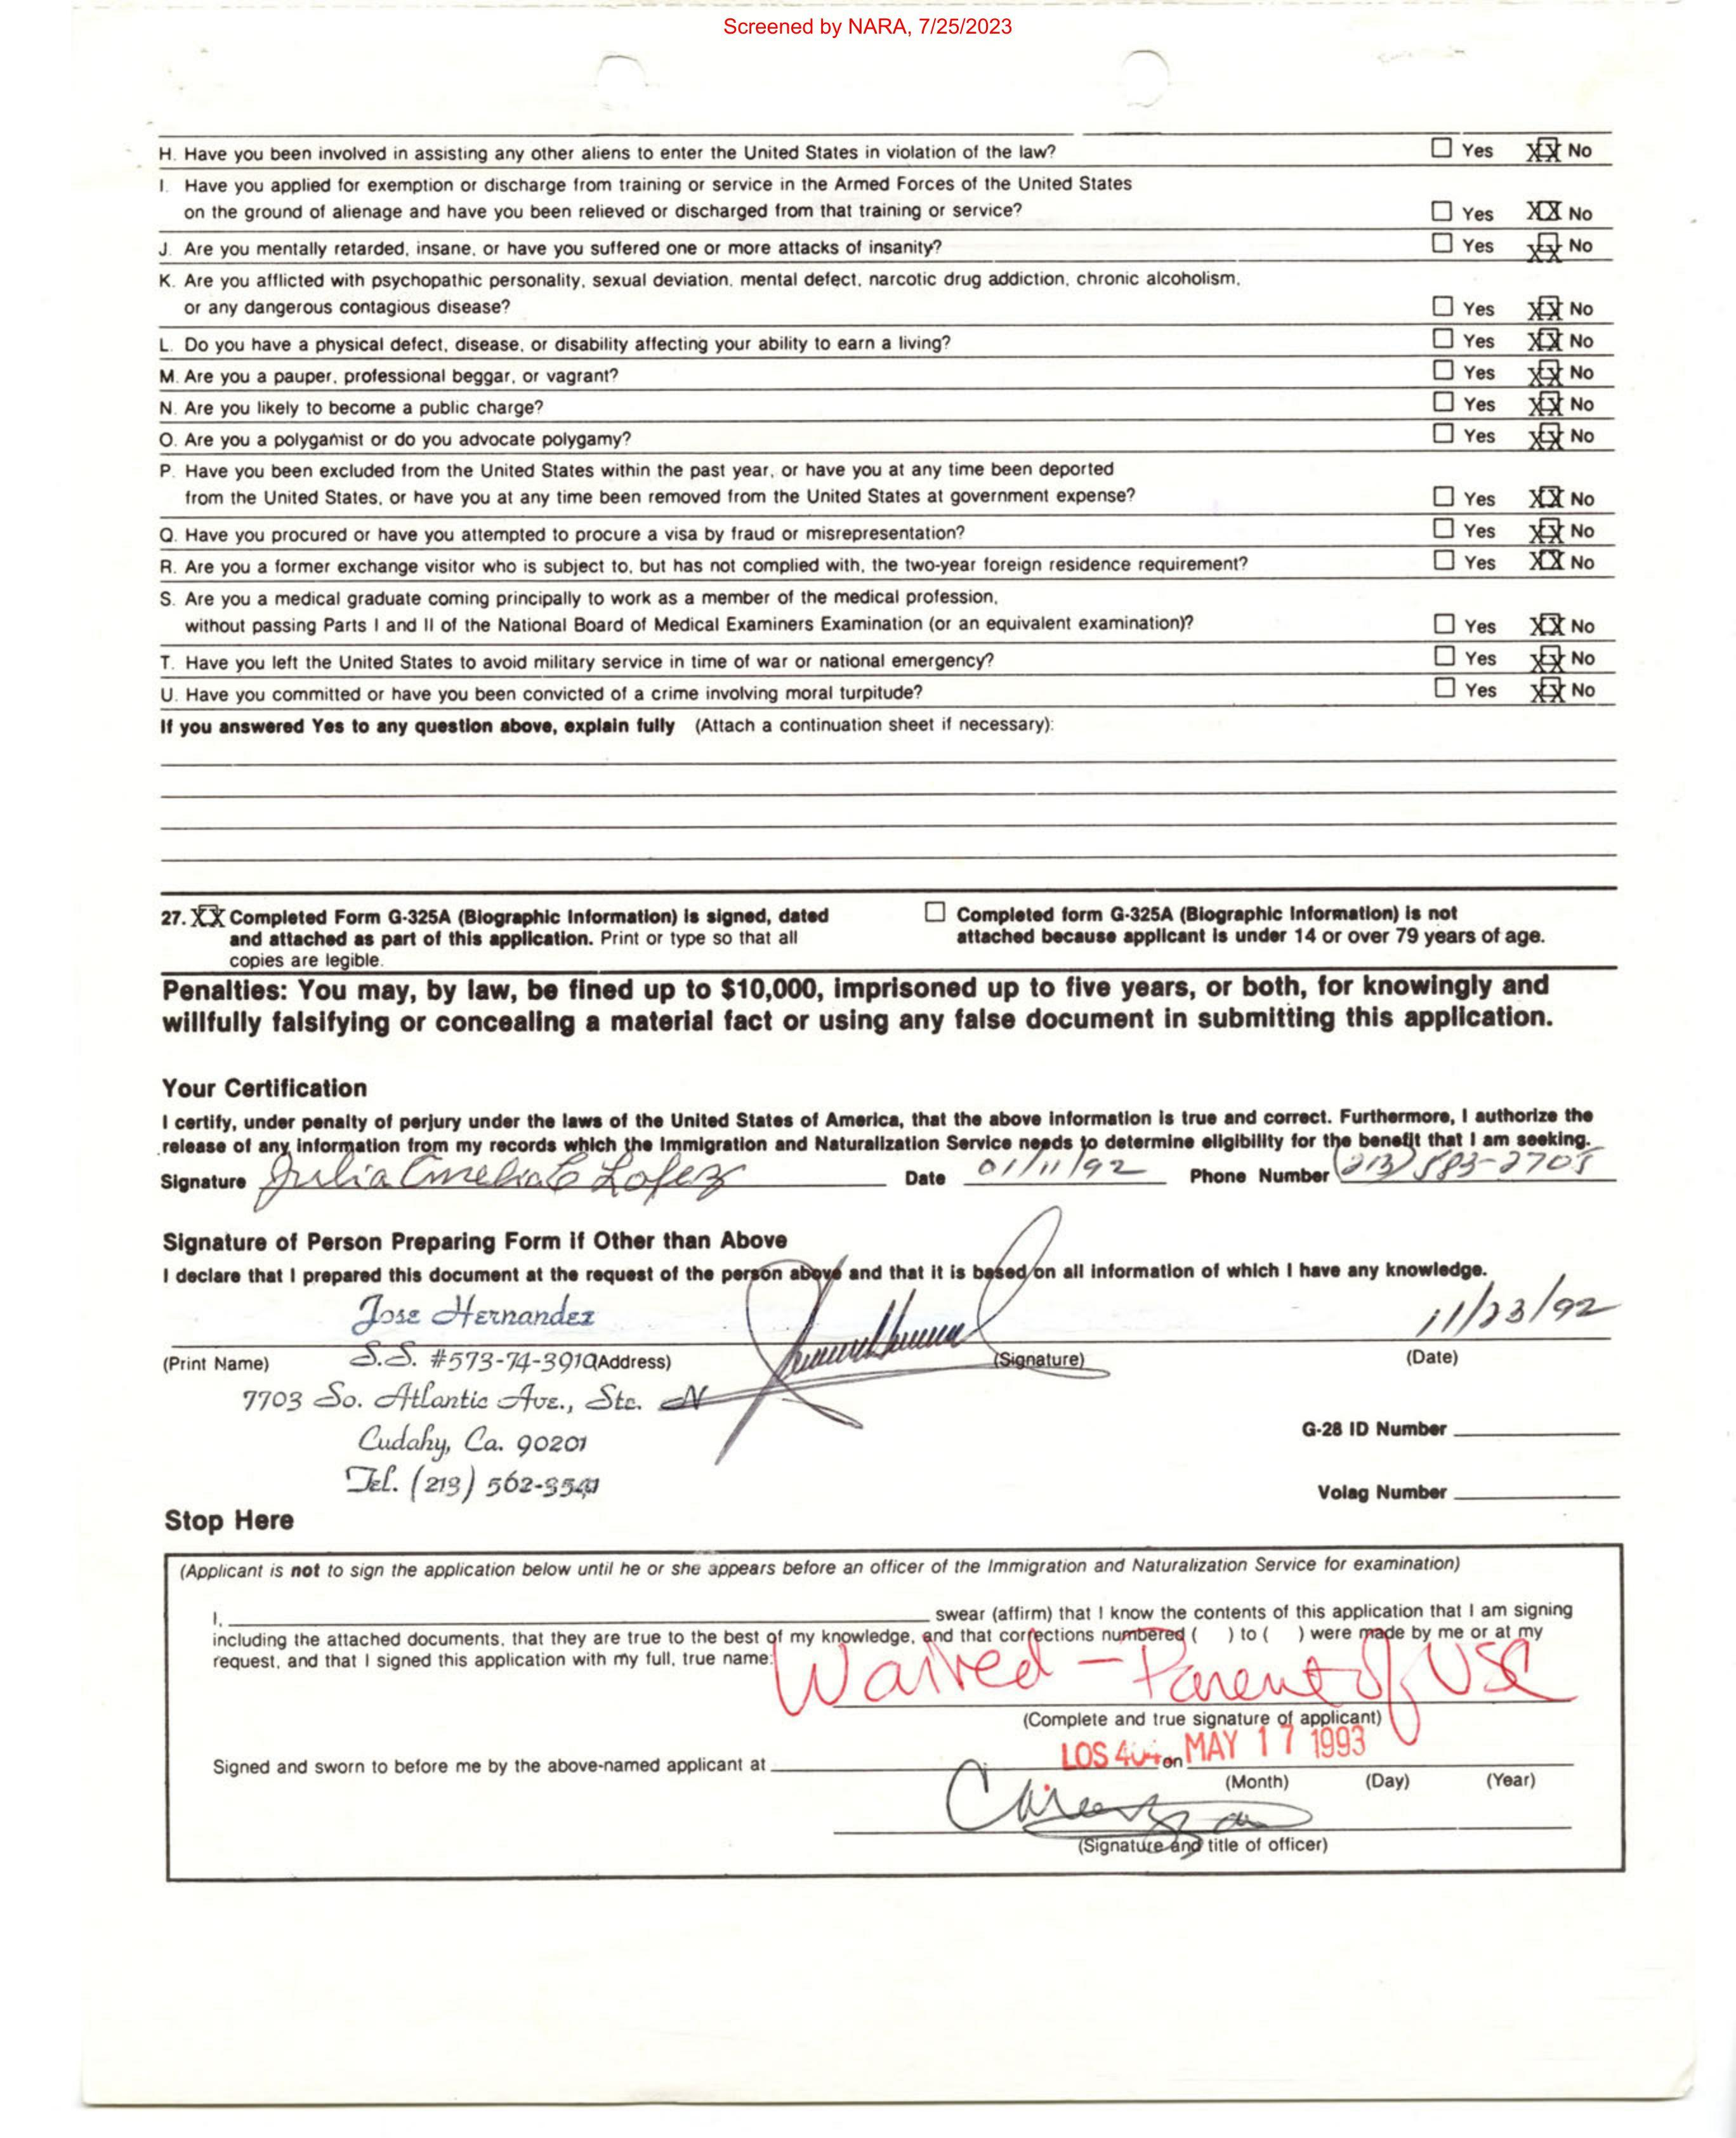 Screened by NARA, 7/25/2023
H. Have you been involved in assisting any other aliens to enter the United States in violation of the law? ☐ Yes XX No
I. Have you applied for exemption or discharge from training or service in the Armed Forces of the United States
on the ground of alienage and have you been relieved or discharged from that training or service? ☐ Yes XX No
J. Are you mentally retarded, insane, or have you suffered one or more attacks of insanity? ☐ Yes XX No
K. Are you afflicted with psychopathic personality, sexual deviation, mental defect, narcotic drug addiction, chronic alcoholism,
or any dangerous contagious disease? ☐ Yes XX No
L. Do you have a physical defect, disease, or disability affecting your ability to earn a living? ☐ Yes XX No
M. Are you a pauper, professional beggar, or vagrant? ☐ Yes XX No
N. Are you likely to become a public charge? ☐ Yes XX No
O. Are you a polygamist or do you advocate polygamy? ☐ Yes XX No
P. Have you been excluded from the United States within the past year, or have you at any time been deported
from the United States, or have you at any time been removed from the United States at government expense? ☐ Yes XX No
Q. Have you procured or have you attempted to procure a visa by fraud or misrepresentation? ☐ Yes XX No
R. Are you a former exchange visitor who is subject to, but has not complied with, the two-year foreign residence requirement? ☐ Yes XX No
S. Are you a medical graduate coming principally to work as a member of the medical profession,
without passing Parts I and II of the National Board of Medical Examiners Examination (or an equivalent examination)? ☐ Yes XX No
T. Have you left the United States to avoid military service in time of war or national emergency? ☐ Yes XX No
U. Have you committed or have you been convicted of a crime involving moral turpitude? ☐ Yes XX No
If you answered Yes to any question above, explain fully (Attach a continuation sheet if necessary):
27. XX Completed Form G-325A (Biographic Information) is signed, dated ☐ Completed form G-325A (Biographic Information) is not
and attached as part of this application. Print or type so that all attached because applicant is under 14 or over 79 years of age.
copies are legible.
Penalties: You may, by law, be fined up to $10,000, imprisoned up to five years, or both, for knowingly and
willfully falsifying or concealing a material fact or using any false document in submitting this application.
Your Certification
I certify, under penalty of perjury under the laws of the United States of America, that the above information is true and correct. Furthermore, I authorize the
release of any information from my records which the Immigration and Naturalization Service needs to determine eligibility for the benefit that I am seeking.
Signature Julia Amelia C Lopez Date 01/11/92 Phone Number (213) 583-2705
Signature of Person Preparing Form if Other than Above
I declare that I prepared this document at the request of the person above and that it is based on all information of which I have any knowledge.
Jose Hernandez 11/23/92
(Print Name) S.S. #573-74-3910 (Address) (Signature) (Date)
7703 So. Atlantic Ave., Ste. N
Cudahy, Ca. 90201 G-28 ID Number
Tel. (213) 562-
Volag Number
Stop Here
(Applicant is not to sign the application below until he or she appears before an officer of the Immigration and Naturalization Service for examination)
I, swear (affirm) that I know the contents of this application that I am signing
including the attached documents, that they are true to the best of my knowledge, and that corrections numbered ( ) to ( ) were made by me or at my
request, and that I signed this application with my full, true name: Waived - Parent of USC
(Complete and true signature of applicant)
Signed and sworn to before me by the above-named applicant at LOS on MAY 17 1993
(Month) (Day) (Year)
(Signature and title of officer)